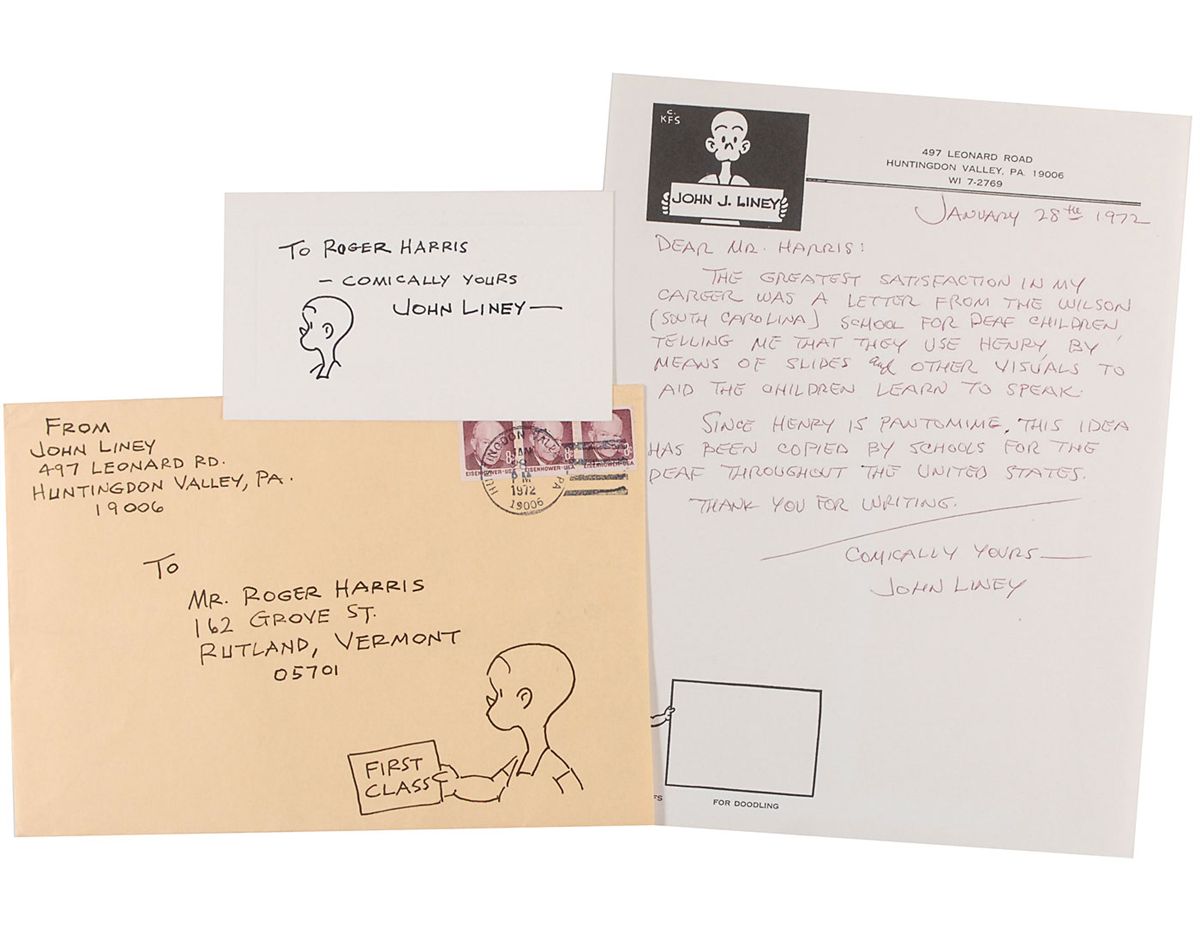 TO ROGER HARRIS
– COMICALLY YOURS
JOHN LINEY —
FROM
JOHN LINEY
497 LEONARD RD.
HUNTINGDON VALLEY, PA.
19006
EISENHOWER·USA EISENHOWER·USA EISENHOWER·USA
8¢
HUNTINGDON VALLEY PA
JAN
PM
1972
19006
TO
MR. ROGER HARRIS
162 GROVE ST.
RUTLAND, VERMONT
05701
FIRST
CLASS
C.
KFS
JOHN J. LINEY
497 LEONARD ROAD
HUNTINGDON VALLEY, PA. 19006
WI 7-2769
JANUARY 28TH 1972
DEAR MR. HARRIS:
THE GREATEST SATISFACTION IN MY
CAREER WAS A LETTER FROM THE WILSON
(SOUTH CAROLINA) SCHOOL FOR DEAF CHILDREN
TELLING ME THAT THEY USE HENRY BY
MEANS OF SLIDES and OTHER VISUALS TO
AID THE CHILDREN LEARN TO SPEAK.
SINCE HENRY IS PANTOMIME, THIS IDEA
HAS BEEN COPIED BY SCHOOLS FOR THE
DEAF THROUGHOUT THE UNITED STATES.
THANK YOU FOR WRITING.
COMICALLY YOURS —
JOHN LINEY
FOR DOODLING